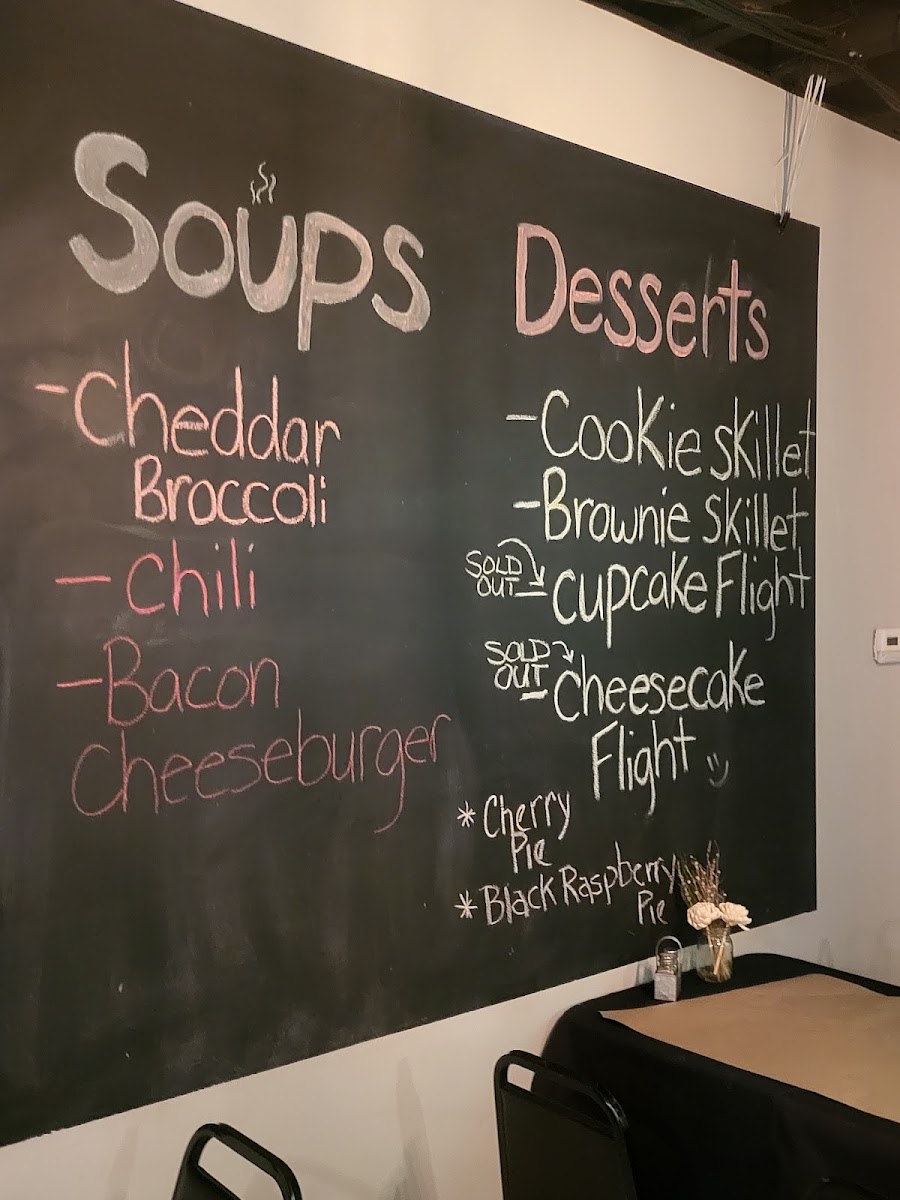 Soups
-Cheddar
Broccoli
-Chili
-Bacon
Cheeseburger
Desserts
-Cookie Skillet
-Brownie Skillet
SOLD
OUT
-Cupcake Flight
SOLD
OUT
-Cheesecake
Flight
* Cherry
Pie
* Black Raspberry
Pie